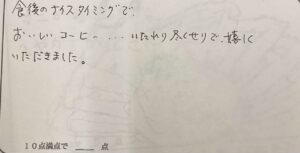 食後のナイスタイミングで、
おいしいコーヒー...いたれり尽くせりで、嬉しく
いただきました。
10点満点で ___ 点